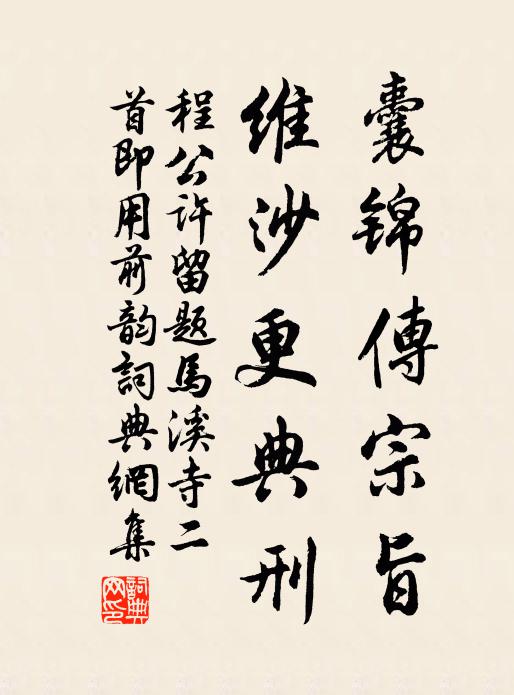 囊锦傳宗旨
維沙更典刑
程公許留題馬溪寺二
首即用前韵詞典網集
詞典網印